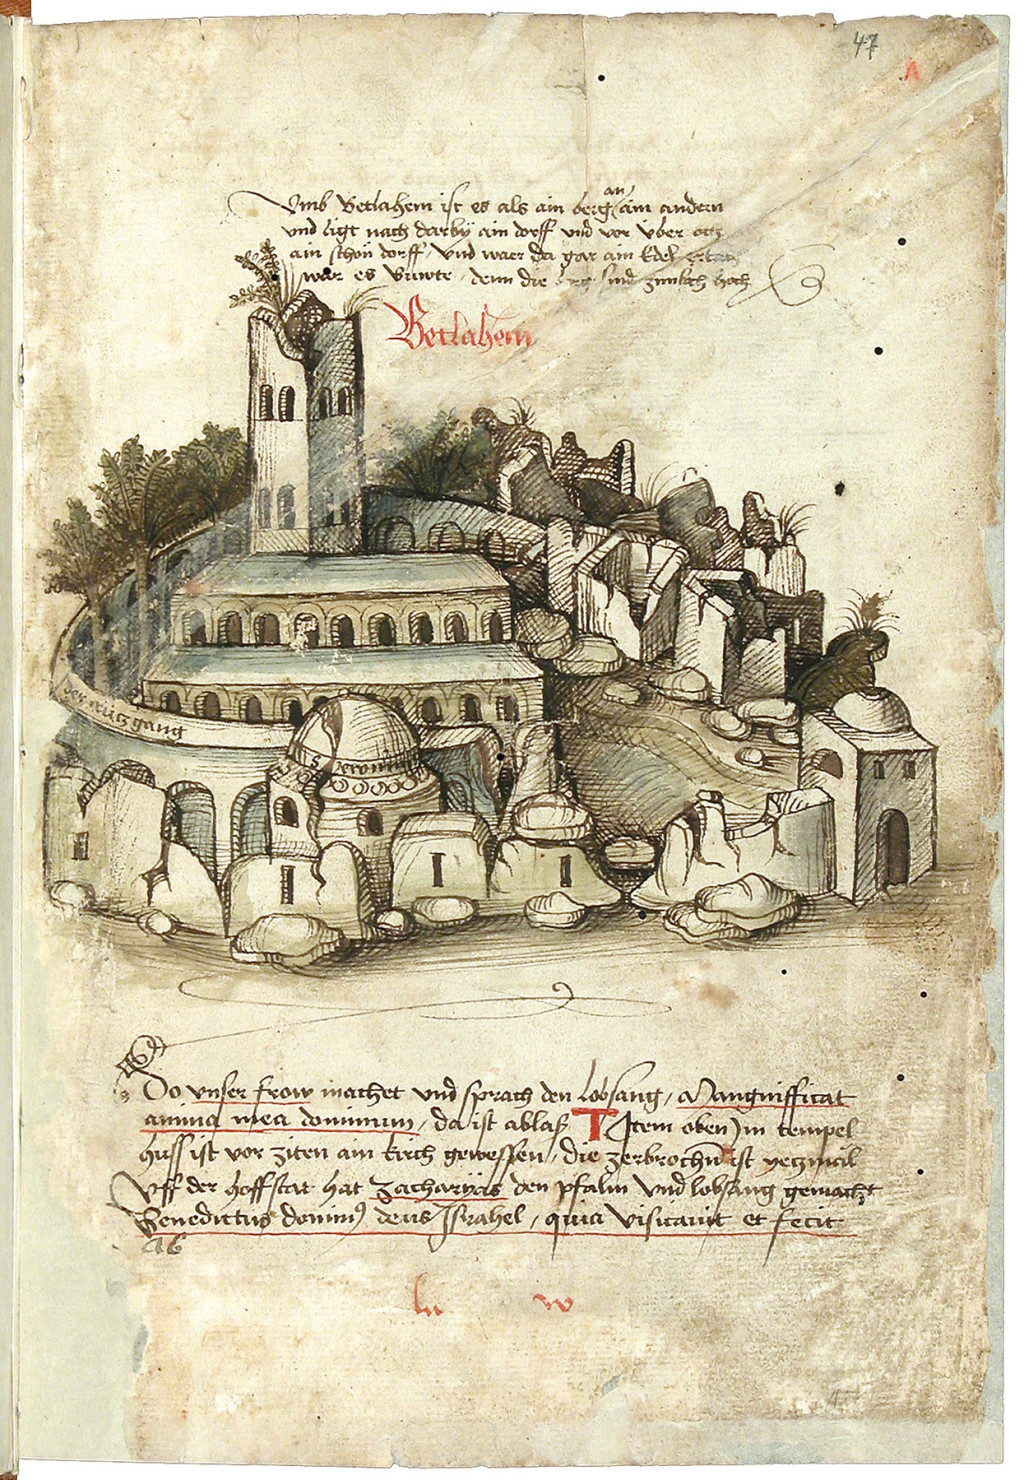 47
A
Vmb Betlahem ist es als ain berg an ain andern
vnd ligt nach darbÿ ain dorff vnd vor vber
ain schön dorff / vnd waer da gar ain Edel
wer es Buwte / denn die berg sind zimlich hoch
Betlahem
der crütz gang
S Jeronim
Do vnser frow machet vnd sprach den lobsang / Mangnifficat
anima mea dominum / da ist ablaß T Jtem oben Jm tempel
huss ist vor ziten ain kirch gewessen / die zerbrochn ist yetzmäl
Vff der hoffstat hat Zacharÿas den psalm vnd lobsang gemacht
Benedictus domin9 deus Jsrahel / quia visitauit et fecit